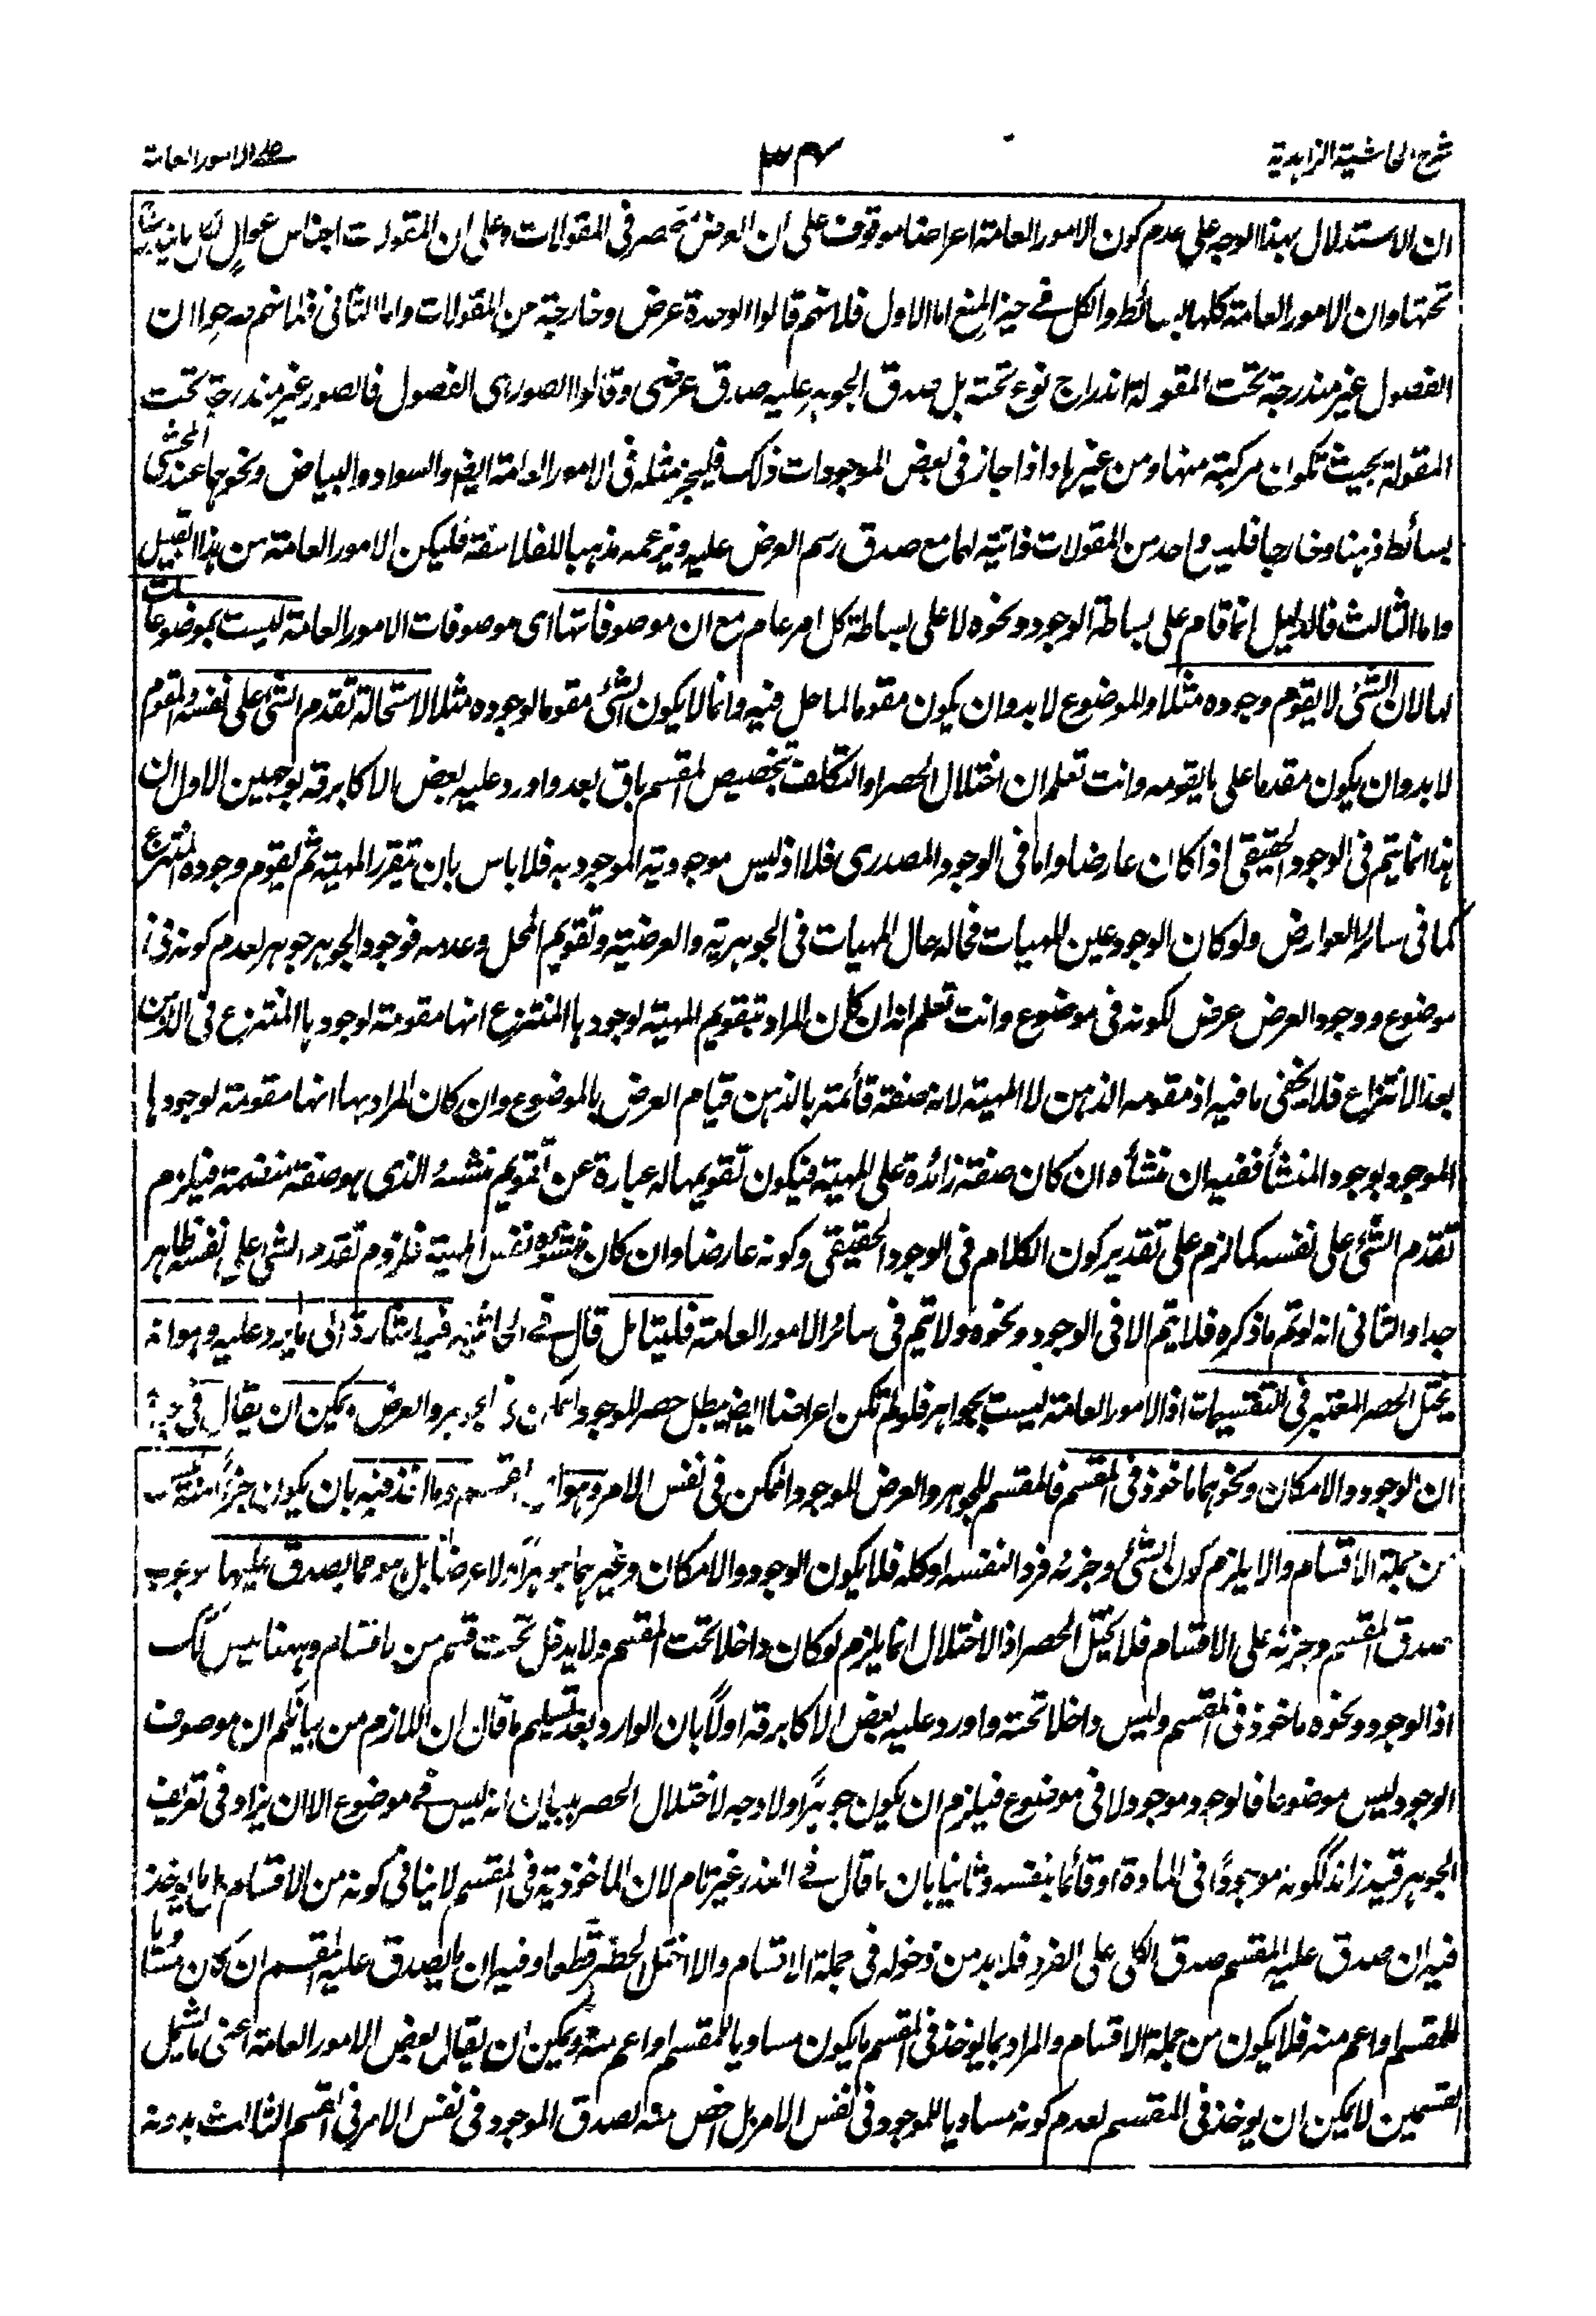 شرح الحاشية الزاهدية
٣٤
على الامور العامة
ان الاستدلال بهذا الوجه على عدم كون الامور العامة اعراضا موقوف على ان العرض منحصر في المقولات وعلى ان المقولات اجناس عوال لكل ما يندرج
تحتها وان الامور العامة كلها بسائط والكل في حيز المنع اما الاول فلانهم قالوا الوحدة عرض وخارجة من المقولات واما الثاني فلانهم صرحوا ان
الفصول غير مندرجة تحت المقولة اندراج نوع تحته بل صدق الجوهر عليه صدق عرضي وقالوا الصور هي الفصول فالصور غير مندرجة تحت
المقولة بحيث تكون مركبة منها ومن غيرها واذا جاز في بعض الموجودات ذلك فليجز مثله في الامور العامة ايضا والسواد والبياض ونحوهما عند المحشي
بسائط ذهنا وخارجا فليس واحد من المقولات ذاتية لها مع صدق رسم العرض عليه ويزعمه مذهبا للفلاسفة فليكن الامور العامة من هذا القبيل
واما الثالث فالدليل انما قام على بساطة الوجود ونحوه لا على بساطة كل امر عام مع ان موصوفاتها اى موصوفات الامور العامة ليست بموضوعات
لها لان الشئ لا يقوم وجوده مثلا والموضوع لا بد وان يكون مقوما لما حل فيه وانما لا يكون الشئ مقوما لوجوده مثلا لاستحالة تقدم الشئ على نفسه والمقوم
لا بد وان يكون مقدما على ما يقومه وانت تعلم ان اختلال الحصر او التكلف بتخصيص المقسم باق بعد واورد عليه بعض الاكابر قه بوجهين الاول ان
هذا انما يتم في الوجود الحقيقي اذا كان عارضا واما في الوجود المصدرى فلا اذ ليس موجودية الموجود به فلا باس بان يتقرر المهية ثم يقوم وجوده المنتزع
كما في سائر العوارض ولو كان الوجود عين المهيات فحاله حال المهيات في الجوهرية والعرضية وتقويم المحل وعدمه فوجود الجوهر جوهر لعدم كونه في
موضوع ووجود العرض عرض لكونه في موضوع وانت تعلم انه ان كان المراد بتقويم المهية لوجودها المنتزع انها مقومة لوجودها المنتزع في الذهن
بعد الانتزاع فلا يخفى ما فيه اذ مقومه الذهن لا المهية لانه صفة قائمة بالذهن قيام العرض بالموضوع وان كان المراد بها انها مقومة لوجودها
الموجود بوجود المنشأ ففيه ان منشأه ان كان صفة زائدة على المهية فيكون تقويمها له عبارة عن تقويم منشئه الذى هو صفة منضمة فيلزم
تقدم الشئ على نفسه كما لزم على تقدير كون الكلام في الوجود الحقيقي وكونه عارضا وان كان منشؤه نفس المهية فلزوم تقدم الشئ على نفسه ظاهر
جدا والثاني انه لو تم ما ذكره فلا يتم الا في الوجود ونحوه ولا يتم في سائر الامور العامة فليتامل قال في الحاشية فيه اشارة الى ما يرد عليه وهو انه
يختل الحصر المعتبر في التقسيمات اذ الامور العامة ليست بجواهر فلو لم تكن اعراضا ايضا يبطل حصر الموجود الممكن في الجوهر والعرض ويمكن ان يقال في
ان الوجود والامكان ونحوهما ماخوذ في المقسم فالمقسم للجوهر والعرض الموجود الممكن في نفس الامر وهو المقسم وما اخذ فيه بان يكون جزأ منه ليس
من جملة الاقسام والا يلزم كون الشئ وجزئه فردا لنفسه او كله فلا يكون الوجود والامكان وغيرهما جوهرا ولا عرضا بل هو مما يصدق عليهما
صدق المقسم وجزئه على الاقسام فلا يختل الحصر اذ الاختلال انما يلزم لو كان داخلا تحت المقسم ولا يدخل تحت قسم من الاقسام وههنا ليس كذلك
اذ الوجود ونحوه ماخوذ في المقسم وليس داخلا تحته واورد عليه بعض الاكابر قه اولا بان الوارد بعد تسليم ما قال ان اللازم من بيانكم ان موصوف
الوجود ليس موضوعا فالوجود موجود لا في موضوع فيلزم ان يكون جوهرا ولا وجه لاختلال الحصر ببيان انه ليس في موضوع الا ان يزاد في تعريف
الجوهر قيد زائد ككونه موجودا في المادة او قائما بنفسه وثانيا بان ما قال في العذر غير تام لان الماخوذية في المقسم لا ينافي كونه من الاقسام اما يوخذ
فيه ان صدق عليه المقسم صدق الكلى على الفرد فلا بد من دخوله في جملة الاقسام والا اختل الحصر قطعا وفيه ان ما يصدق عليه المقسم ان كان مساويا
للمقسم او اعم منه فلا يكون من جملة الاقسام والمراد بما يوخذ في المقسم ما يكون مساويا للمقسم او اعم منه ويمكن ان يقال بعض الامور العامة اعنى ما يشمل
القسمين لا يمكن ان يوخذ في المقسم لعدم كونه مساويا للموجود في نفس الامر بل اخص منه لصدق الموجود في نفس الامر في القسم الثالث بدونه